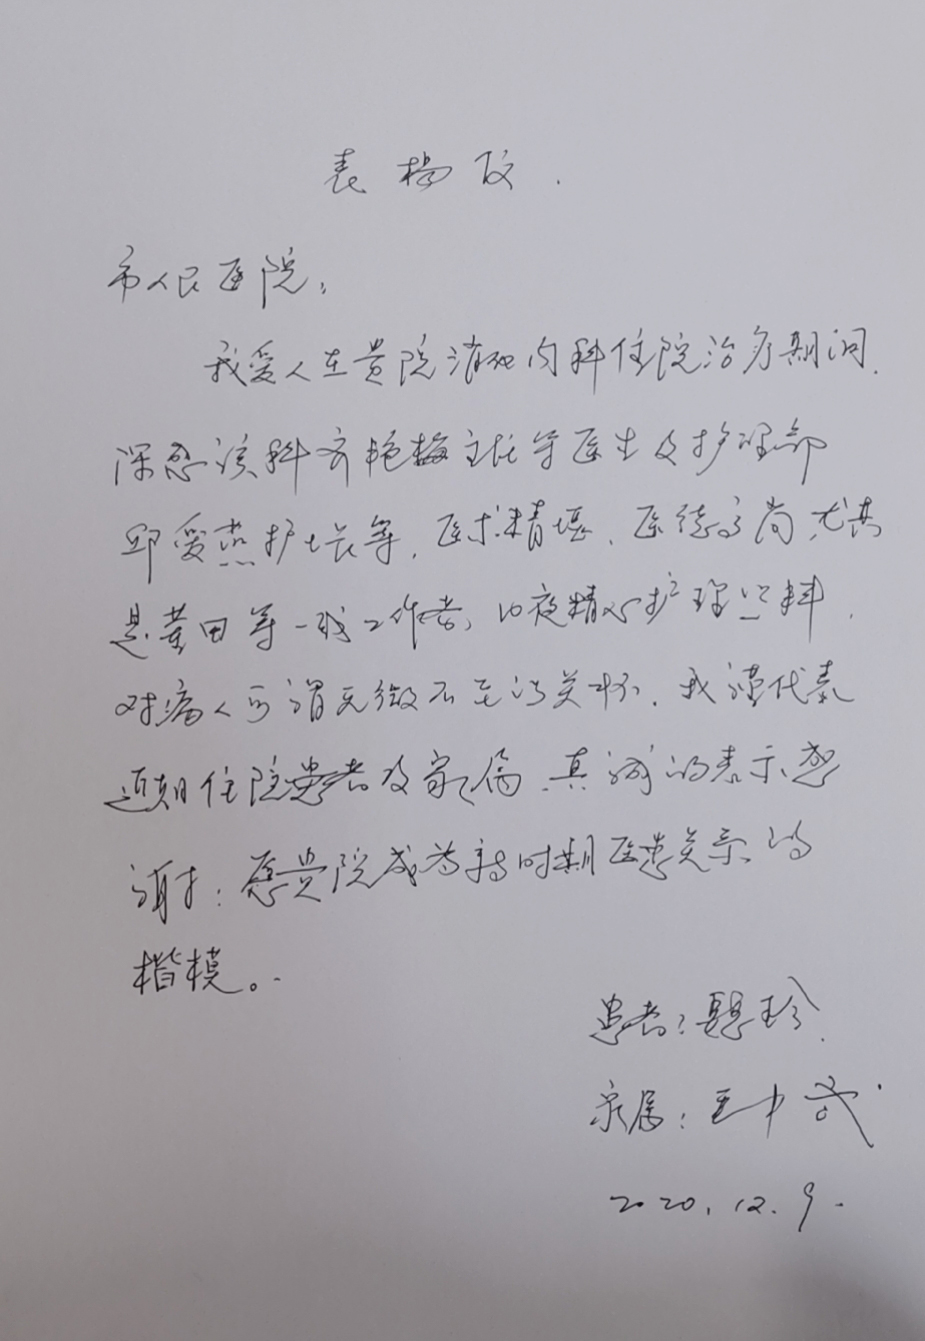 表扬
市人民医院:
我爱人在贵院消化内科住院治疗期间.
深感该科齐艳梅主任等医生及护理部
邱爱燕护士长等, 医术精堪, 医德高尚, 尤其
是黄田等一线工作者, 日夜精心护理照料,
对病人可谓无微不至的关怀. 我谨代表
近期住院患者及家属 真诚的表示感
谢才: 愿贵院成为新时期医患关系的
楷模。
患者: 珍
家属: 王中
2020.12.9.